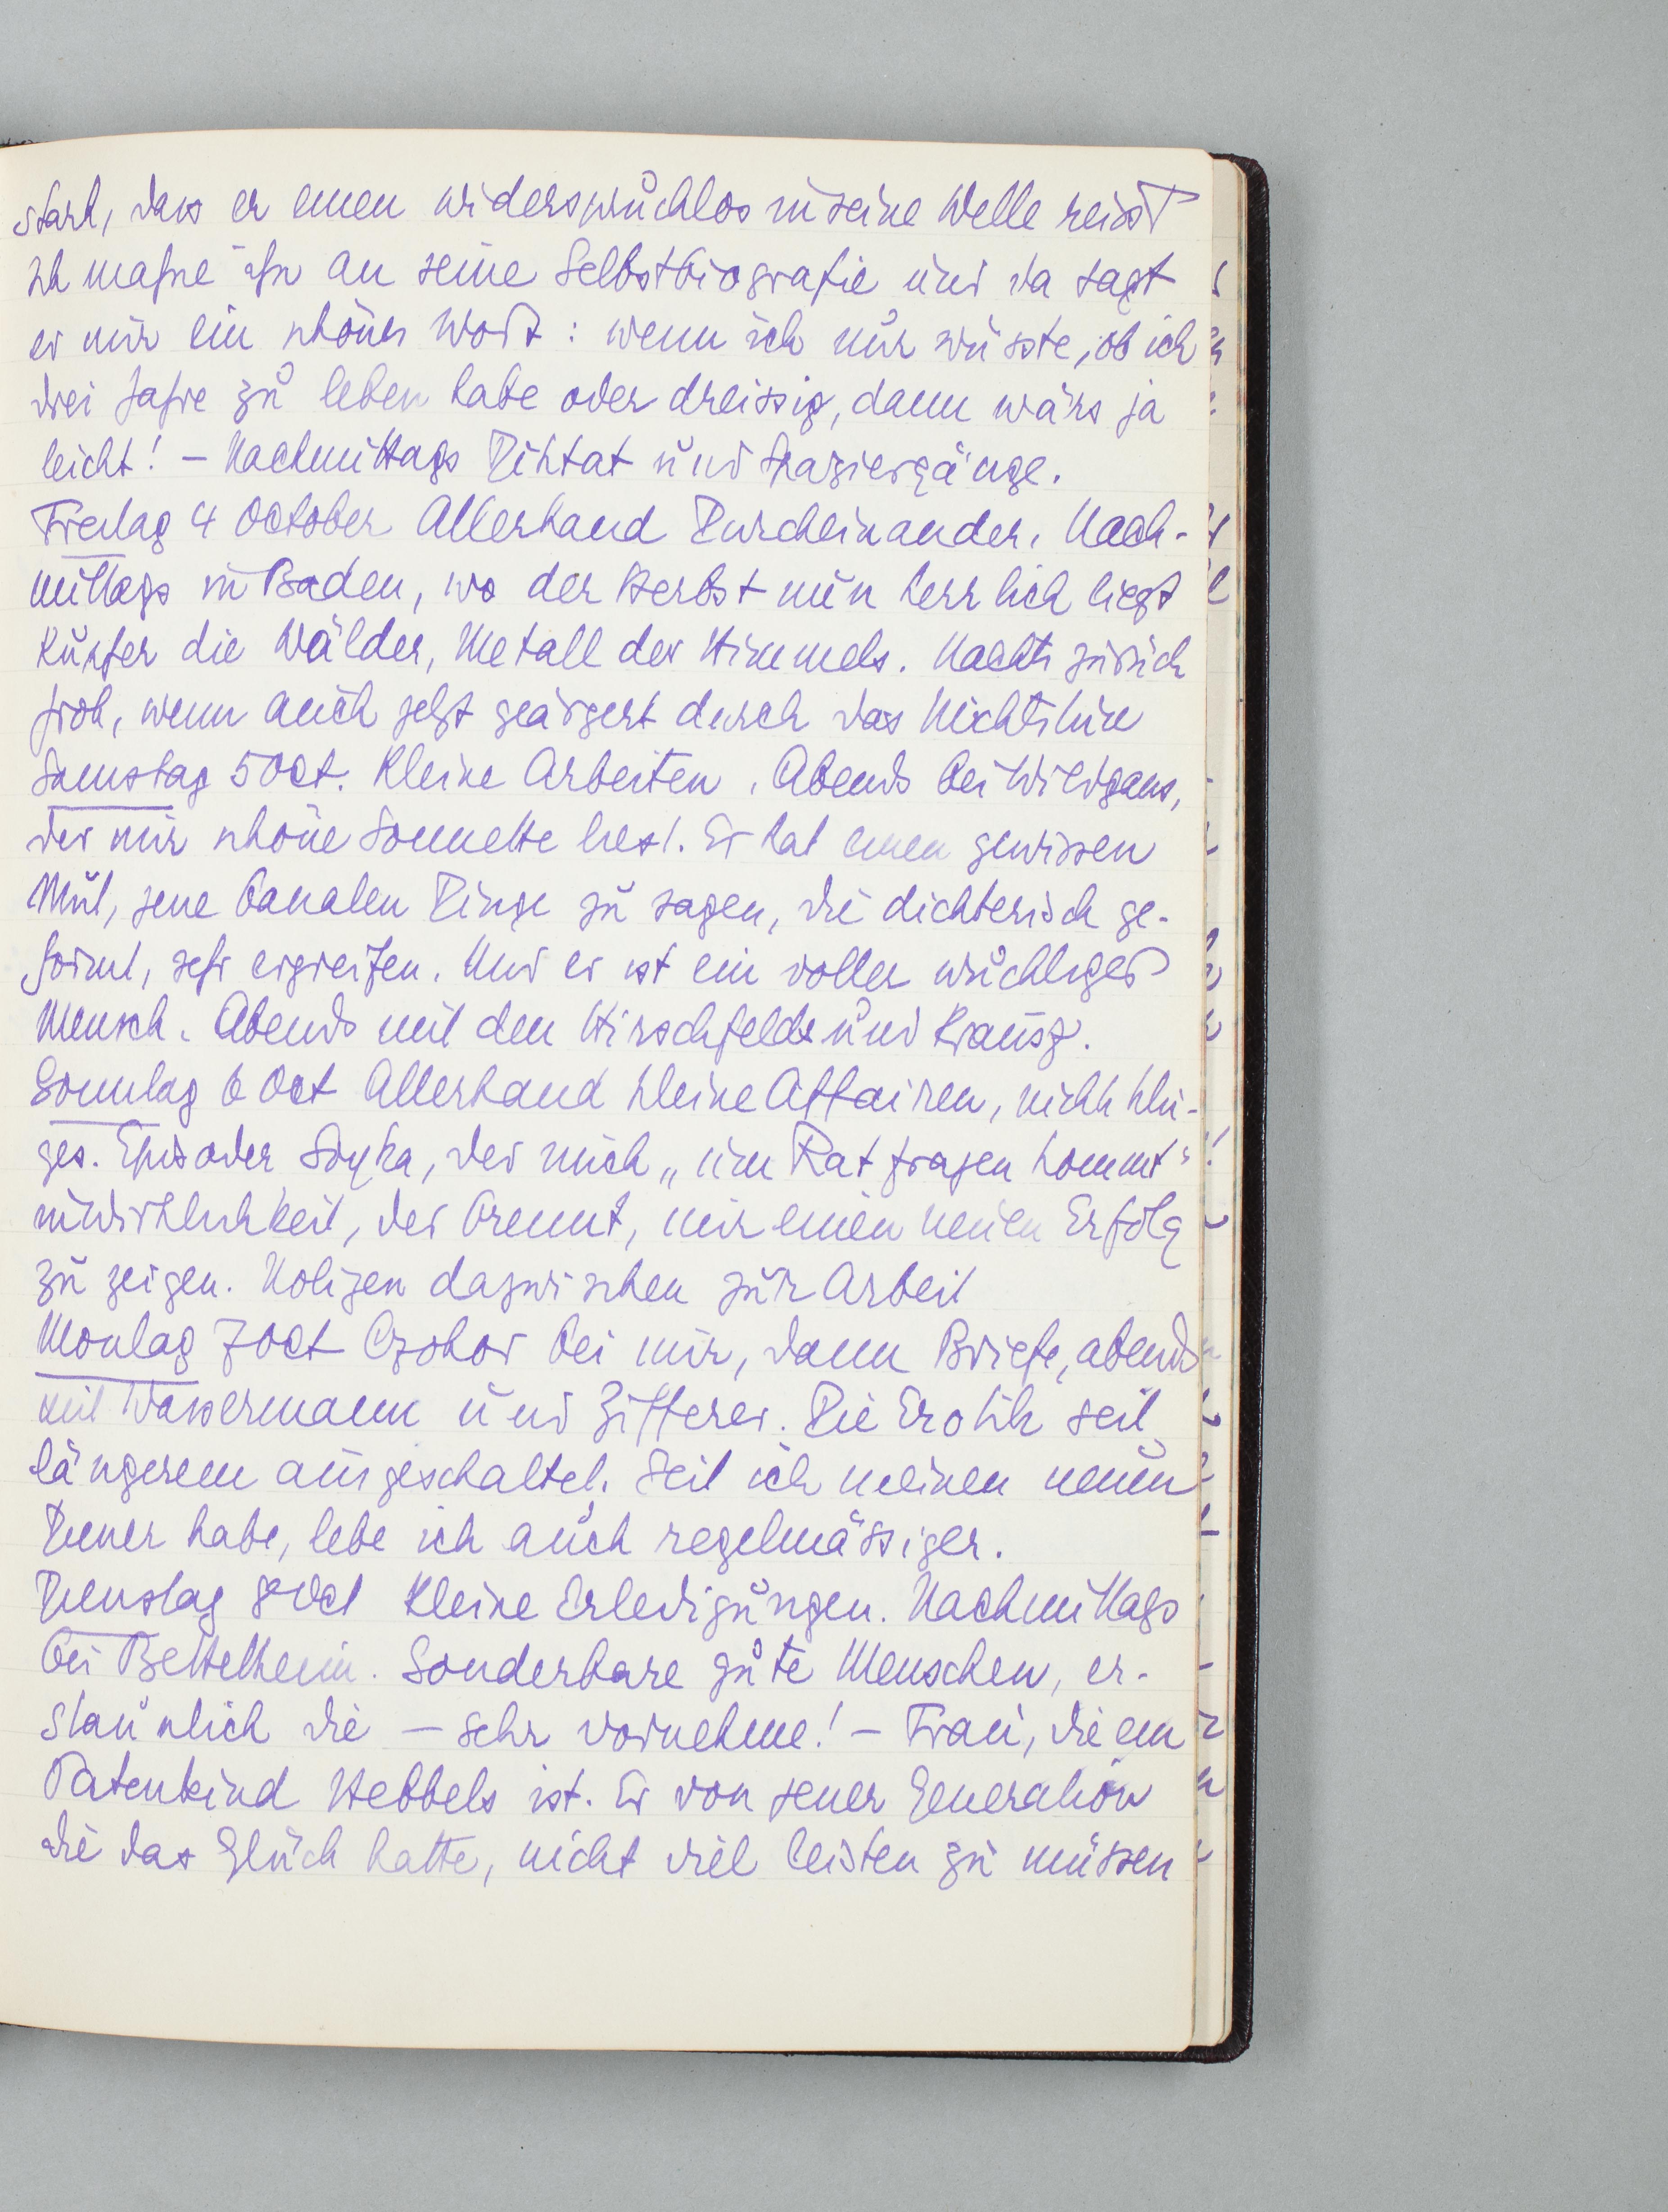 stark, dass er einen widerspruchlos in seine Welle reisst
Ich mahne ihn an seine Selbstbiografie und da sagt
er mir ein schönes Wort: wenn ich nur wüsste, ob ich
drei Jahre zu leben habe oder dreissig, dann wärs ja
leicht! – Nachmittags Diktat und Spaziergänge.
Freitag 4 October Allerhand Durcheinander. Nach-
mittags in Baden, wo der Herbst nun herrlich liegt
Kupfer die Wälder, Metall der Himmels. Nachts zurück
froh, wenn auch jetzt geärgert durch das Nichtstun
Samstag 5 Oct. Kleine Arbeiten. Abends bei Wildgans,
der mir schöne Sonnette liest. Er hat einen gewissen
Mut, jene banalen Dinge zu sagen, die dichterisch ge-
formt, sehr ergreifen. Und er ist ein voller wuchtiger
Mensch. Abends mit den Hirschfelds und Krausz.
Sonntag 6 Oct Allerhand kleine Affairen, nichts
ges. Episoder Soyka, der mich „um Rat fragen kommt"
in Wirklichkeit, der brennt, mir einen neuen Erfolg
zu zeigen. Notizen dazwischen zur Arbeit
Montag 7 Oct Czokor bei mir, dann Briefe, abends
mit Wassermann und Zifferer. Die Erotik seit
längerem ausgeschaltet. Seit ich meinen neuen
Diener habe, lebe ich auch regelmässiger.
Dienstag 8 Oct Kleine Erledigungen. Nachmittags
bei Bettelheim. Sonderbare gute Menschen, er-
staunlich die – sehr vornehme! – Frau, die ein
Patenkind Hebbels ist. Er von jener Generation
die das Glück hatte, nicht viel leisten zu müssen